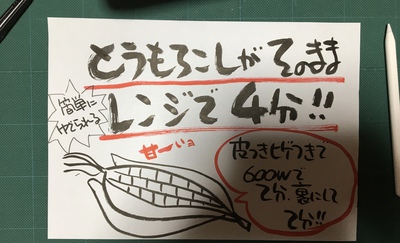 とうもろこしが そのまま
簡単に
ゆでられる
レンジで 4分!!
甘〜いョ
皮つきヒゲつきで
600Wで
2分、裏にして
2分!!